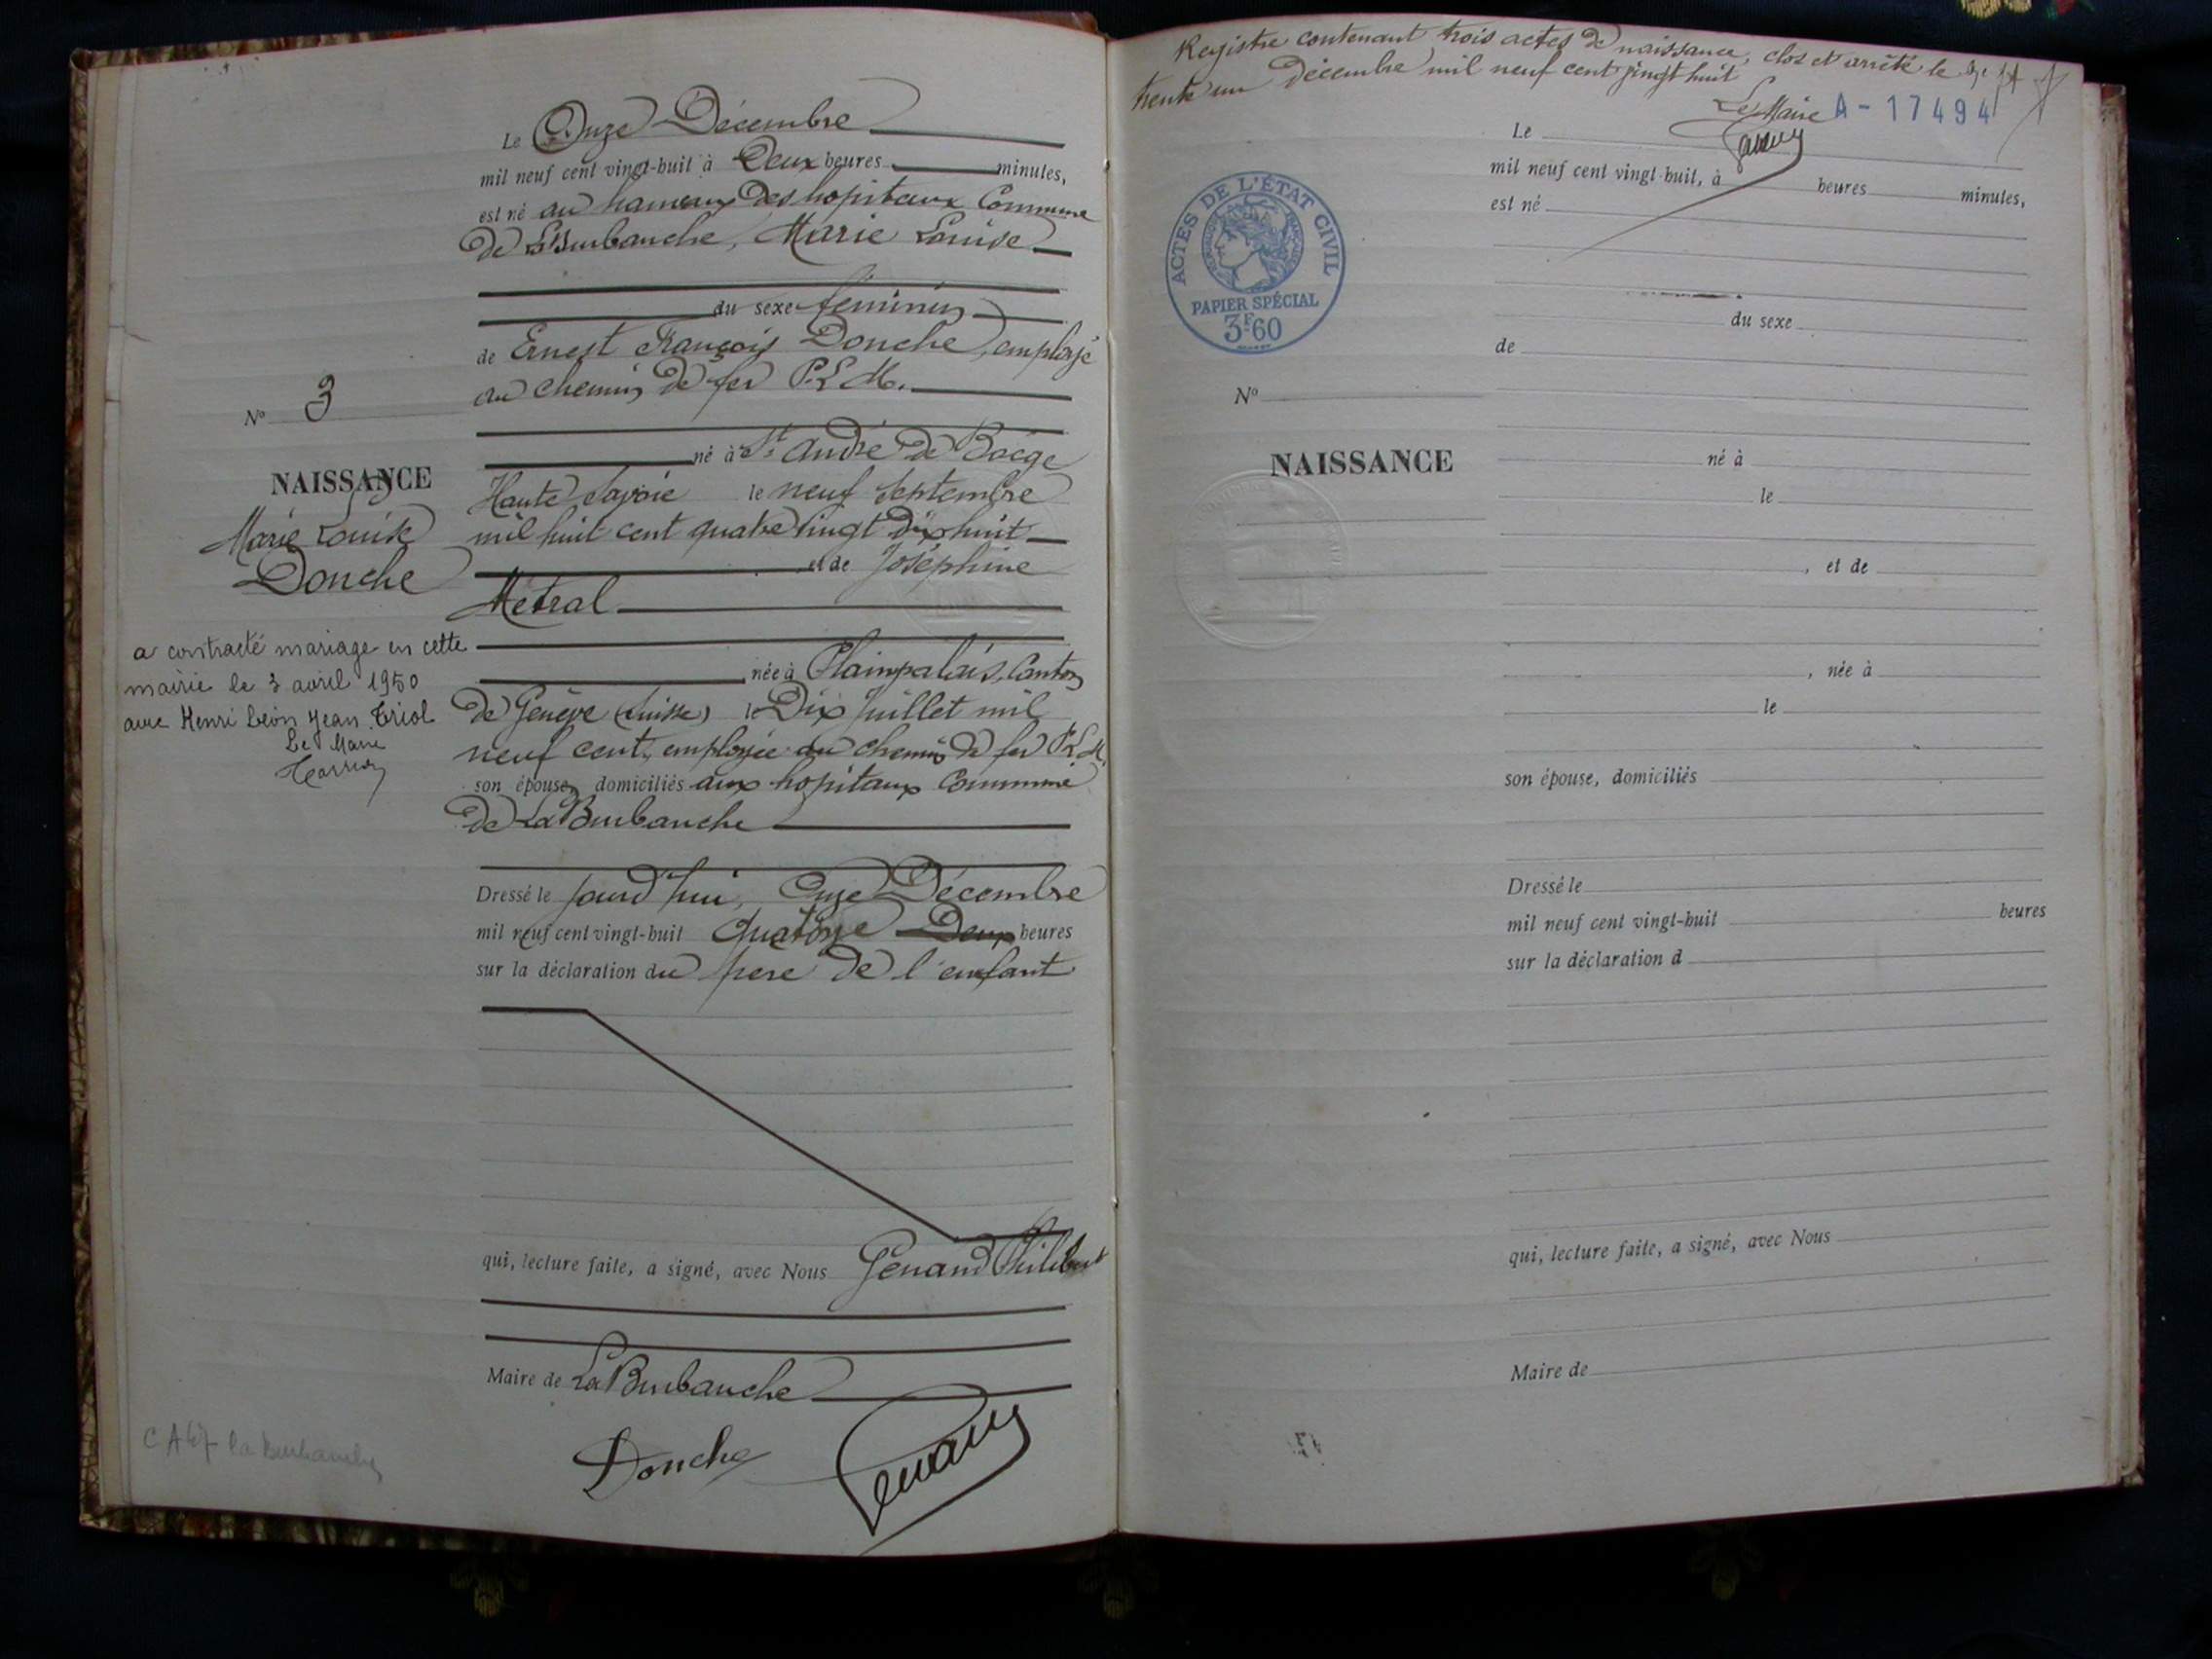 Le Onze Décembre
mil neuf cent vingt-huit à Deux heures minutes,
est né au hameau des hopitaux Commune
de La Burbanche, Marie Louise
du sexe féminin
de Ernest François Donche, employé
au chemin de fer P.L.M.
né à St André de Boëge
Haute Savoie le neuf Septembre
mil huit cent quatre vingt dix huit
et de Joséphine
Métral
née à Plainpalais, Canton
de Genève (Suisse) le Dix Juillet mil
neuf cent, employée au chemin de fer P.L.M.
son épouse, domiciliés aux hopitaux Commune
de La Burbanche
Dressé le jourd'hui, Onze Décembre
mil neuf cent vingt-huit quatorze Deux heures
sur la déclaration du père de l'enfant
qui, lecture faite, a signé, avec Nous Genand Philibert
Maire de La Burbanche
Donche
Genand
N° 3
NAISSANCE
Marie Louise
Donche
a contracté mariage en cette
mairie le 3 avril 1950
avec Henri Léon Jean Triol
Le Maire
la Burbanche
Registre contenant trois actes de naissance, clos et arrêté le
trente un Décembre mil neuf cent vingt huit
Le Maire
A-17494
Genand
ACTES DE L'ÉTAT CIVIL
RÉPUBLIQUE FRANÇAISE
PAPIER SPÉCIAL
3F60
Le
mil neuf cent vingt-huit, à heures minutes,
est né
du sexe
de
N°
NAISSANCE
né à
le
, et de
, née à
le
son épouse, domiciliés
Dressé le
mil neuf cent vingt-huit heures
sur la déclaration d
qui, lecture faite, a signé, avec Nous
Maire de